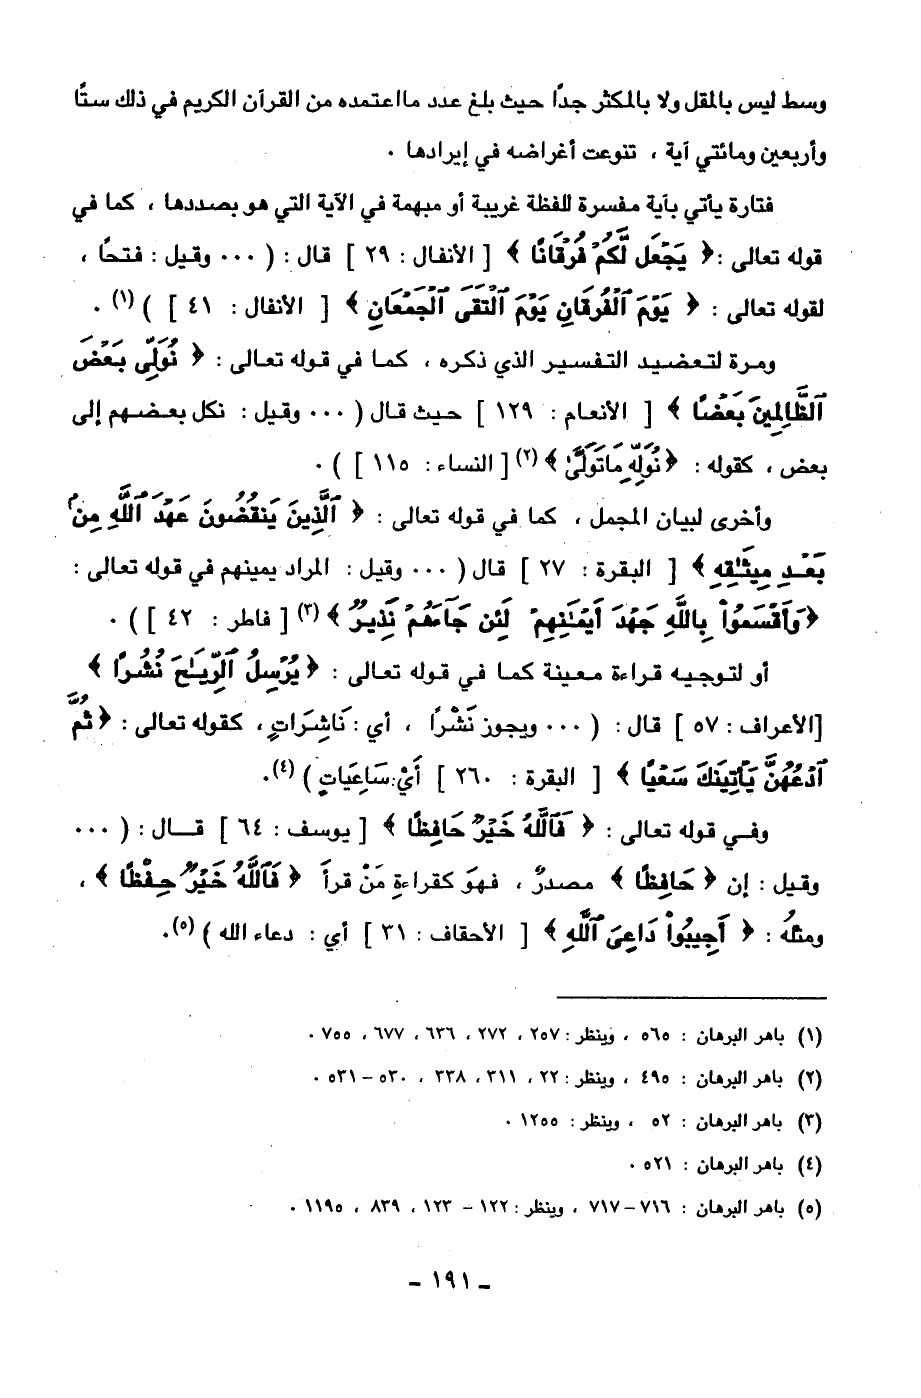 وسط ليس بالمقل ولا بالمكثر جداً حيث بلغ عدد مااعتمده من القرآن الكريم في ذلك ستاً
وأربعين ومائتي آية ، تنوعت أغراضه في إيرادها .
فتارة يأتي بآية مفسرة للفظة غريبة أو مبهمة في الآية التي هو بصددها ، كما في
قوله تعالى : ﴿ يَجْعَل لَّكُمْ فُرْقَانًا ﴾ [ الأنفال : ٢٩ ] قال : ( ... وقيل : فتحاً ،
لقوله تعالى : ﴿ يَوْمَ ٱلْفُرْقَانِ يَوْمَ ٱلْتَقَى ٱلْجَمْعَانِ ﴾ [ الأنفال : ٤١ ] ) (١) .
ومرة لتعضيد التفسير الذي ذكره ، كما في قوله تعالى : ﴿ نُوَلِّى بَعْضَ
ٱلظَّالِمِينَ بَعْضًا ﴾ [ الأنعام : ١٢٩ ] حيث قال ( ... وقيل : نكل بعضهم إلى
بعض ، كقوله : ﴿ نُوَلِّهِ مَاتَوَلَّىٰ ﴾ (٢) [ النساء : ١١٥ ] ) .
وأخرى لبيان المجمل ، كما في قوله تعالى : ﴿ ٱلَّذِينَ يَنقُضُونَ عَهْدَ ٱللَّهِ مِنۢ
بَعْدِ مِيثَٰقِهِ ﴾ [ البقرة : ٢٧ ] قال ( ... وقيل : المراد يمينهم في قوله تعالى :
﴿ وَأَقْسَمُوا۟ بِٱللَّهِ جَهْدَ أَيْمَٰنِهِمْ لَئِن جَآءَهُمْ نَذِيرٌ ﴾ (٣) [ فاطر : ٤٢ ] ) .
أو لتوجيه قراءة معينة كما في قوله تعالى : ﴿ يُرْسِلُ ٱلرِّيَٰحَ نُشُرًا ﴾
[الأعراف : ٥٧ ] قال : ( ... ويجوز نَشْراً ، أي : نَاشِرَاتٍ ، كقوله تعالى : ﴿ ثُمَّ
ٱدْعُهُنَّ يَأْتِينَكَ سَعْيًا ﴾ [ البقرة : ٢٦٠ ] أَيْ: سَاعِيَاتٍ ) (٤).
وفي قوله تعالى : ﴿ فَٱللَّهُ خَيْرٌ حَافِظًا ﴾ [ يوسف : ٦٤ ] قال : ( ...
وقيل : إن ﴿ حَافِظًا ﴾ مصدرٌ ، فهوَ كقراءةِ مَنْ قرأَ ﴿ فَٱللَّهُ خَيْرٌ حِفْظًا ﴾ ،
ومثلُه : ﴿ أَجِيبُوا۟ دَاعِىَ ٱللَّهِ ﴾ [ الأحقاف : ٣١ ] أي : دعاء الله ) (٥).
(١) باهر البرهان : ٥٦٥ ، وينظر : ٢٥٧ ، ٢٧٢ ، ٦٣٦ ، ٦٧٧ ، ٧٥٥ .
(٢) باهر البرهان : ٤٩٥ ، وينظر : ٢٢ ، ٣١١ ، ٣٣٨ ، ٥٣٠ – ٥٣١ .
(٣) باهر البرهان : ٥٢ ، وينظر : ١٢٥٥ .
(٤) باهر البرهان : ٥٢١ .
(٥) باهر البرهان : ٧١٦ – ٧١٧ ، وينظر : ١٢٢ – ١٢٣ ، ٨٣٩ ، ١١٩٥ .
- ١٩١ -